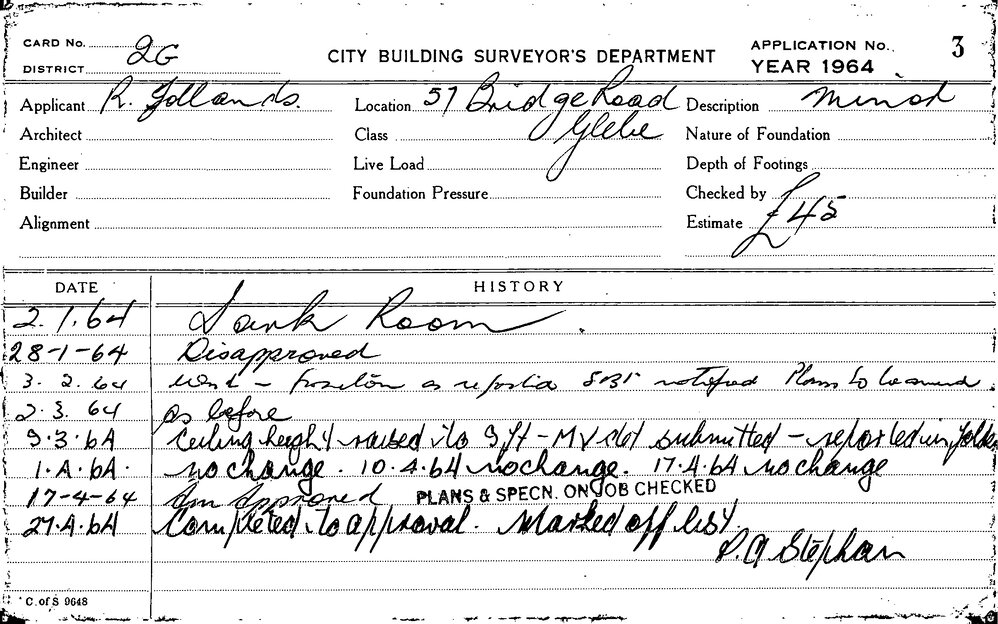 CARD No. 2G
DISTRICT
CITY BUILDING SURVEYOR'S DEPARTMENT
APPLICATION No. 3
YEAR 1964
Applicant R. Yollands. Location 57 Bridge Road Description Minor
Architect Class Glebe Nature of Foundation
Engineer Live Load Depth of Footings
Builder Foundation Pressure Checked by
Alignment Estimate £45
DATE HISTORY
2.1.64 Dark Room.
28-1-64 Disapproved
3.2.64 Work - Position as notified Plans to be
2.3.64 as before
9.3.64 Ceiling height raised to 9ft - submitted - reported in folder
1.4.64. no change. 10.4.64 no change. 17.4.64 no change
17-4-64 Approved PLANS & SPECN. ON JOB CHECKED
27.4.64 Completed to approval. Marked off list.
Stephan
C. of S 9648